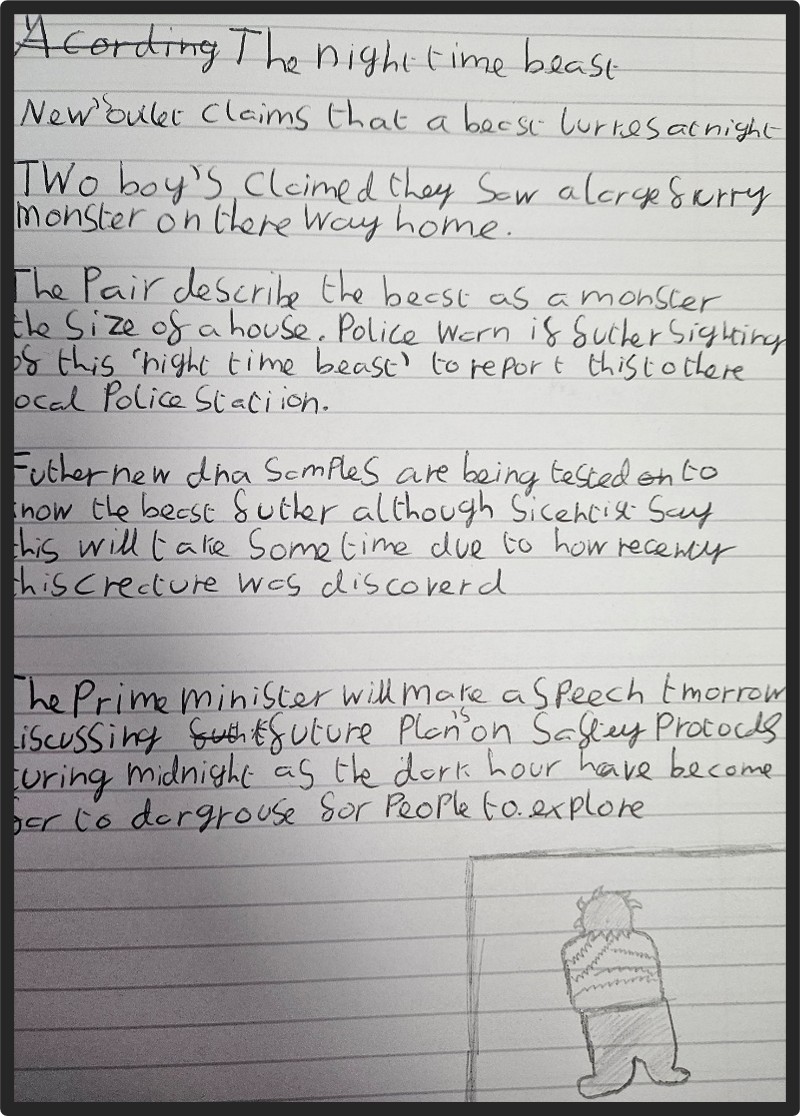 Acording The night time beast
New's outlet claims that a beast lurkes at night
Two boy's claimed they saw a large furry
monster on there way home.
The Pair describe the beast as a monster
the size of a house. Police warn if futher sighting
of this 'night time beast' to report this to there
ocal Police Statiion.
Futher new dna samples are being tested on to
know the beast futher although sicentist say
this will take some time due to how recently
this creature was discoverd
The Prime minister will make a speech tmorrow
iscussing future Plan's on Saftey Protocols
during midnight as the dark hour have become
far to dargrouse for People to explore